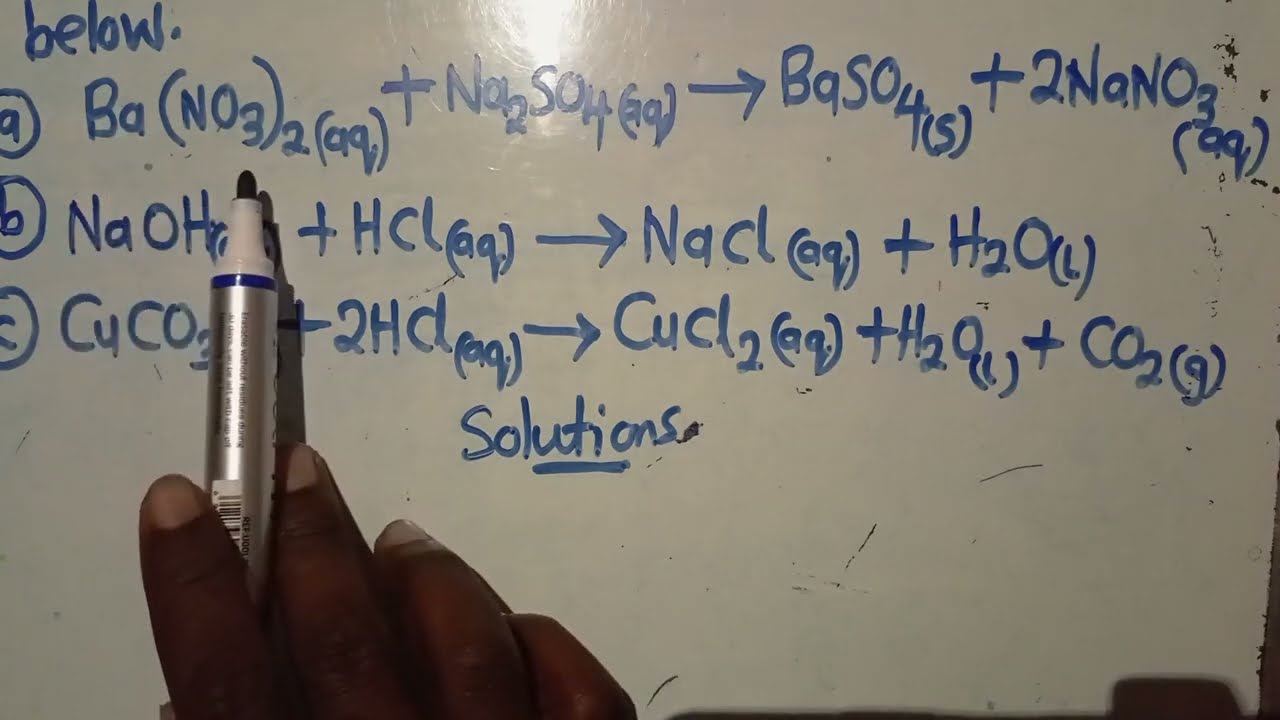 below.
a) Ba(NO3)2(aq) + Na2SO4(aq) → BaSO4(s) + 2NaNO3(aq)
b) NaOH + HCl(aq) → NaCl(aq) + H2O(l)
c) CuCO3 + 2HCl(aq) → CuCl2(aq) + H2O(l) + CO2(g)
Solutions